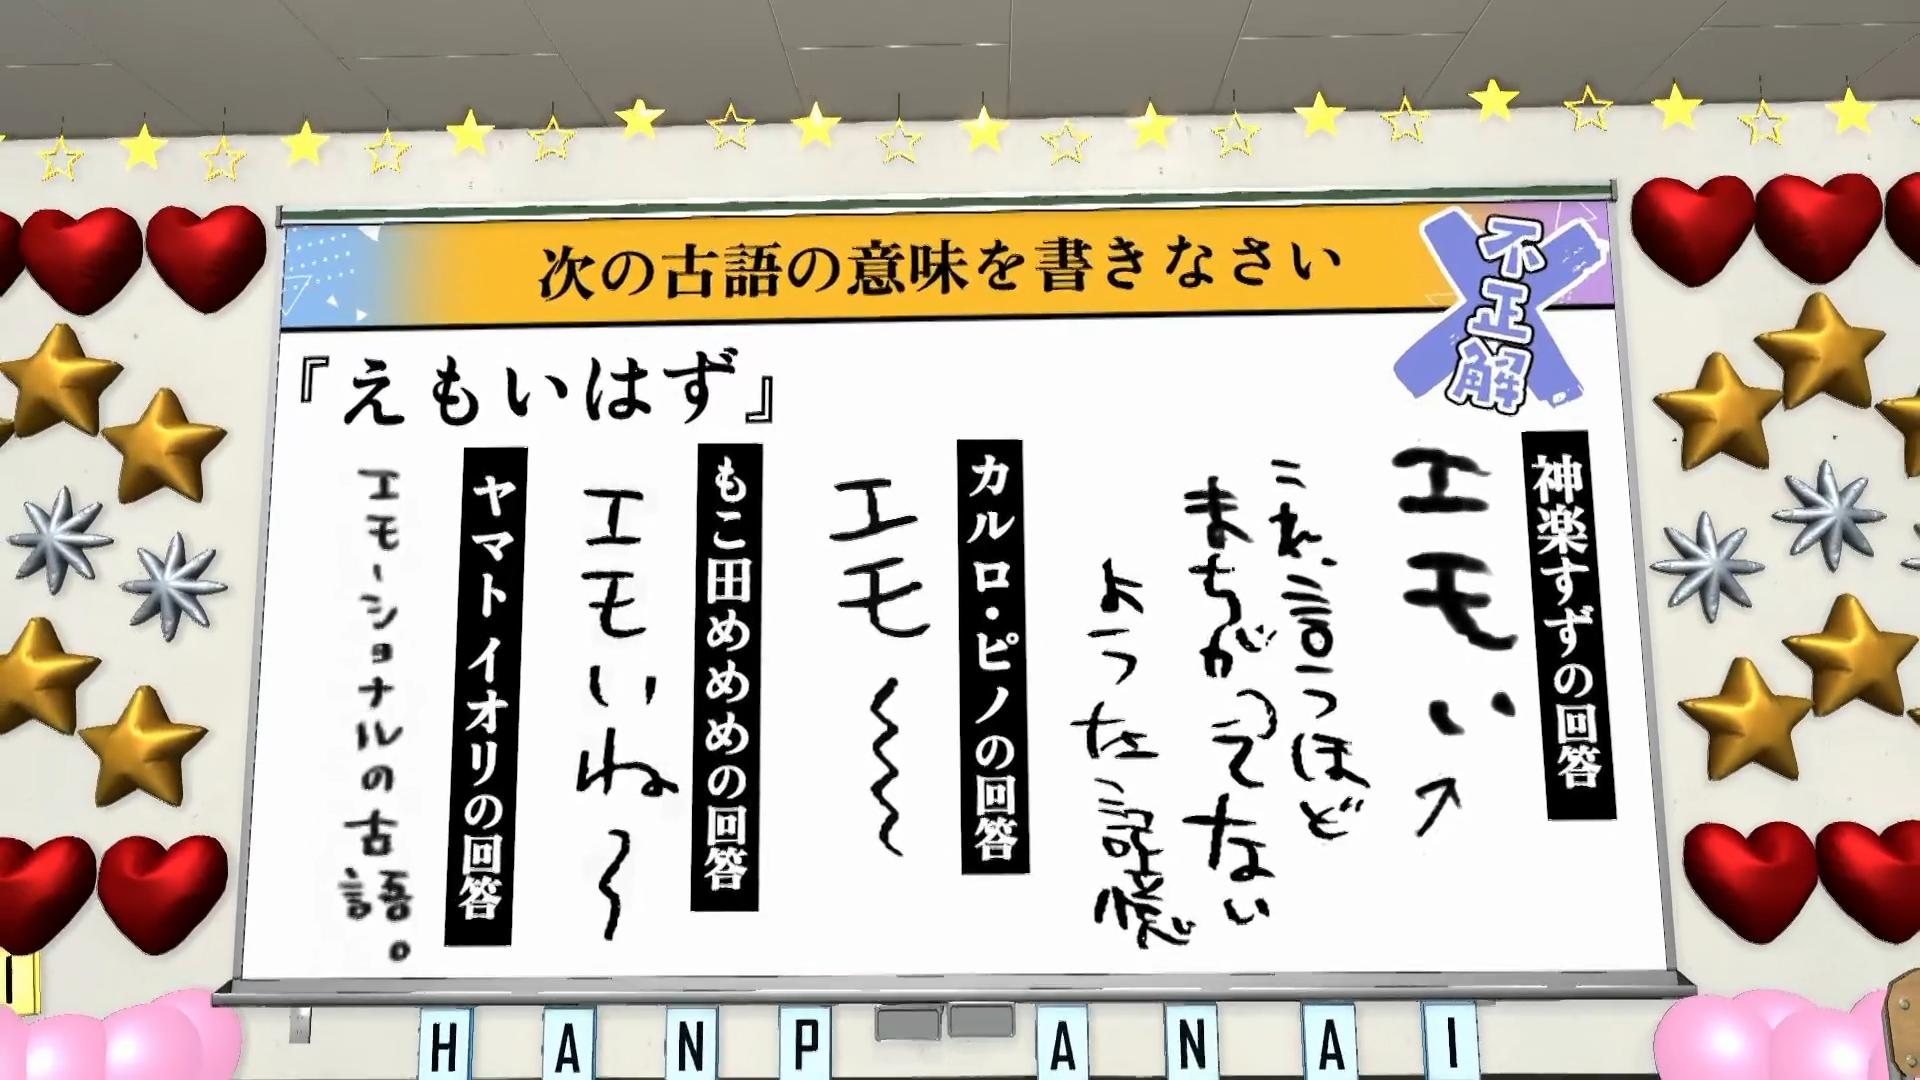 次の古語の意味を書きなさい
不正解
『えもいはず』
神楽すずの回答
エモい
↗
これ、言うほど
まちがってない
ような記憶
カルロ・ピノの回答
エモ〜〜〜
もこ田めめめの回答
エモいね〜
ヤマト イオリの回答
エモーショナルの古語。
HANPANAI